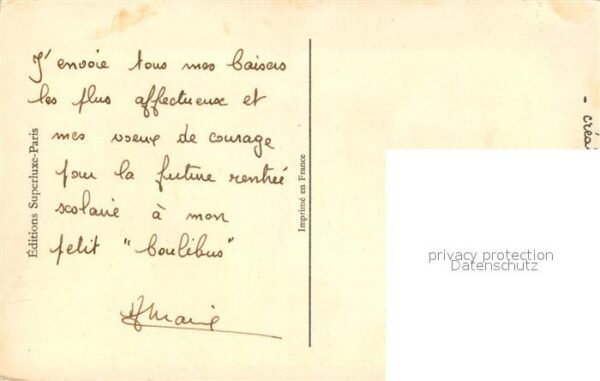 J'envoie tous mes baisers
les plus affectueux et
mes voeux de courage
pour la future rentrée
scolaire à mon
petit "boulibus"
Marie
Éditions Superluxe-Paris
Imprimé en France
- créa
privacy protection
Datenschutz